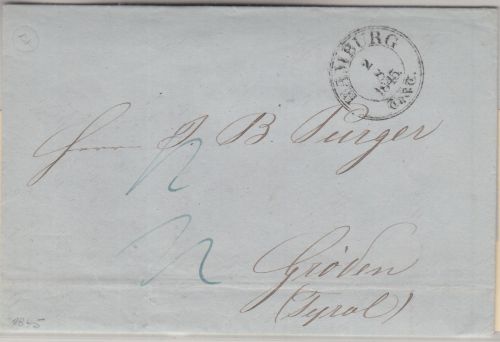 HAMBURG
2
1845
Herrn J. B. Purger
Gröden
(Tyrol)
1845